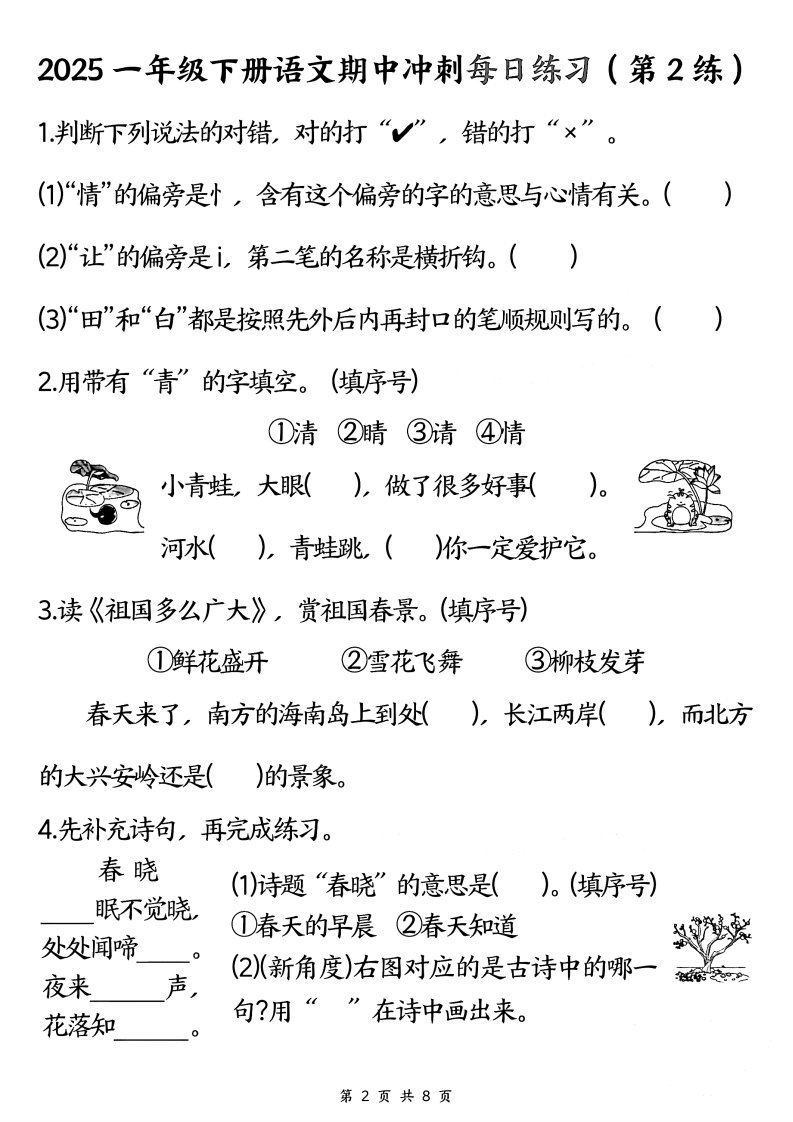 2025一年级下册语文期中冲刺每日练习（第2练）
1.判断下列说法的对错，对的打“✔”，错的打“×”。
(1)“情”的偏旁是忄，含有这个偏旁的字的意思与心情有关。(　　)
(2)“让”的偏旁是i，第二笔的名称是横折钩。(　　)
(3)“田”和“白”都是按照先外后内再封口的笔顺规则写的。(　　)
2.用带有“青”的字填空。(填序号)
①清 ②晴 ③请 ④情
小青蛙，大眼(　　)，做了很多好事(　　)。
河水(　　)，青蛙跳，(　　)你一定爱护它。
3.读《祖国多么广大》，赏祖国春景。(填序号)
①鲜花盛开 ②雪花飞舞 ③柳枝发芽
春天来了，南方的海南岛上到处(　　)，长江两岸(　　)，而北方
的大兴安岭还是(　　)的景象。
4.先补充诗句，再完成练习。
春 晓
____眠不觉晓，
处处闻啼____。
夜来______声，
花落知______。
(1)诗题“春晓”的意思是(　　)。(填序号)
①春天的早晨 ②春天知道
(2)(新角度)右图对应的是古诗中的哪一
句?用“　”在诗中画出来。
第 2 页 共 8 页